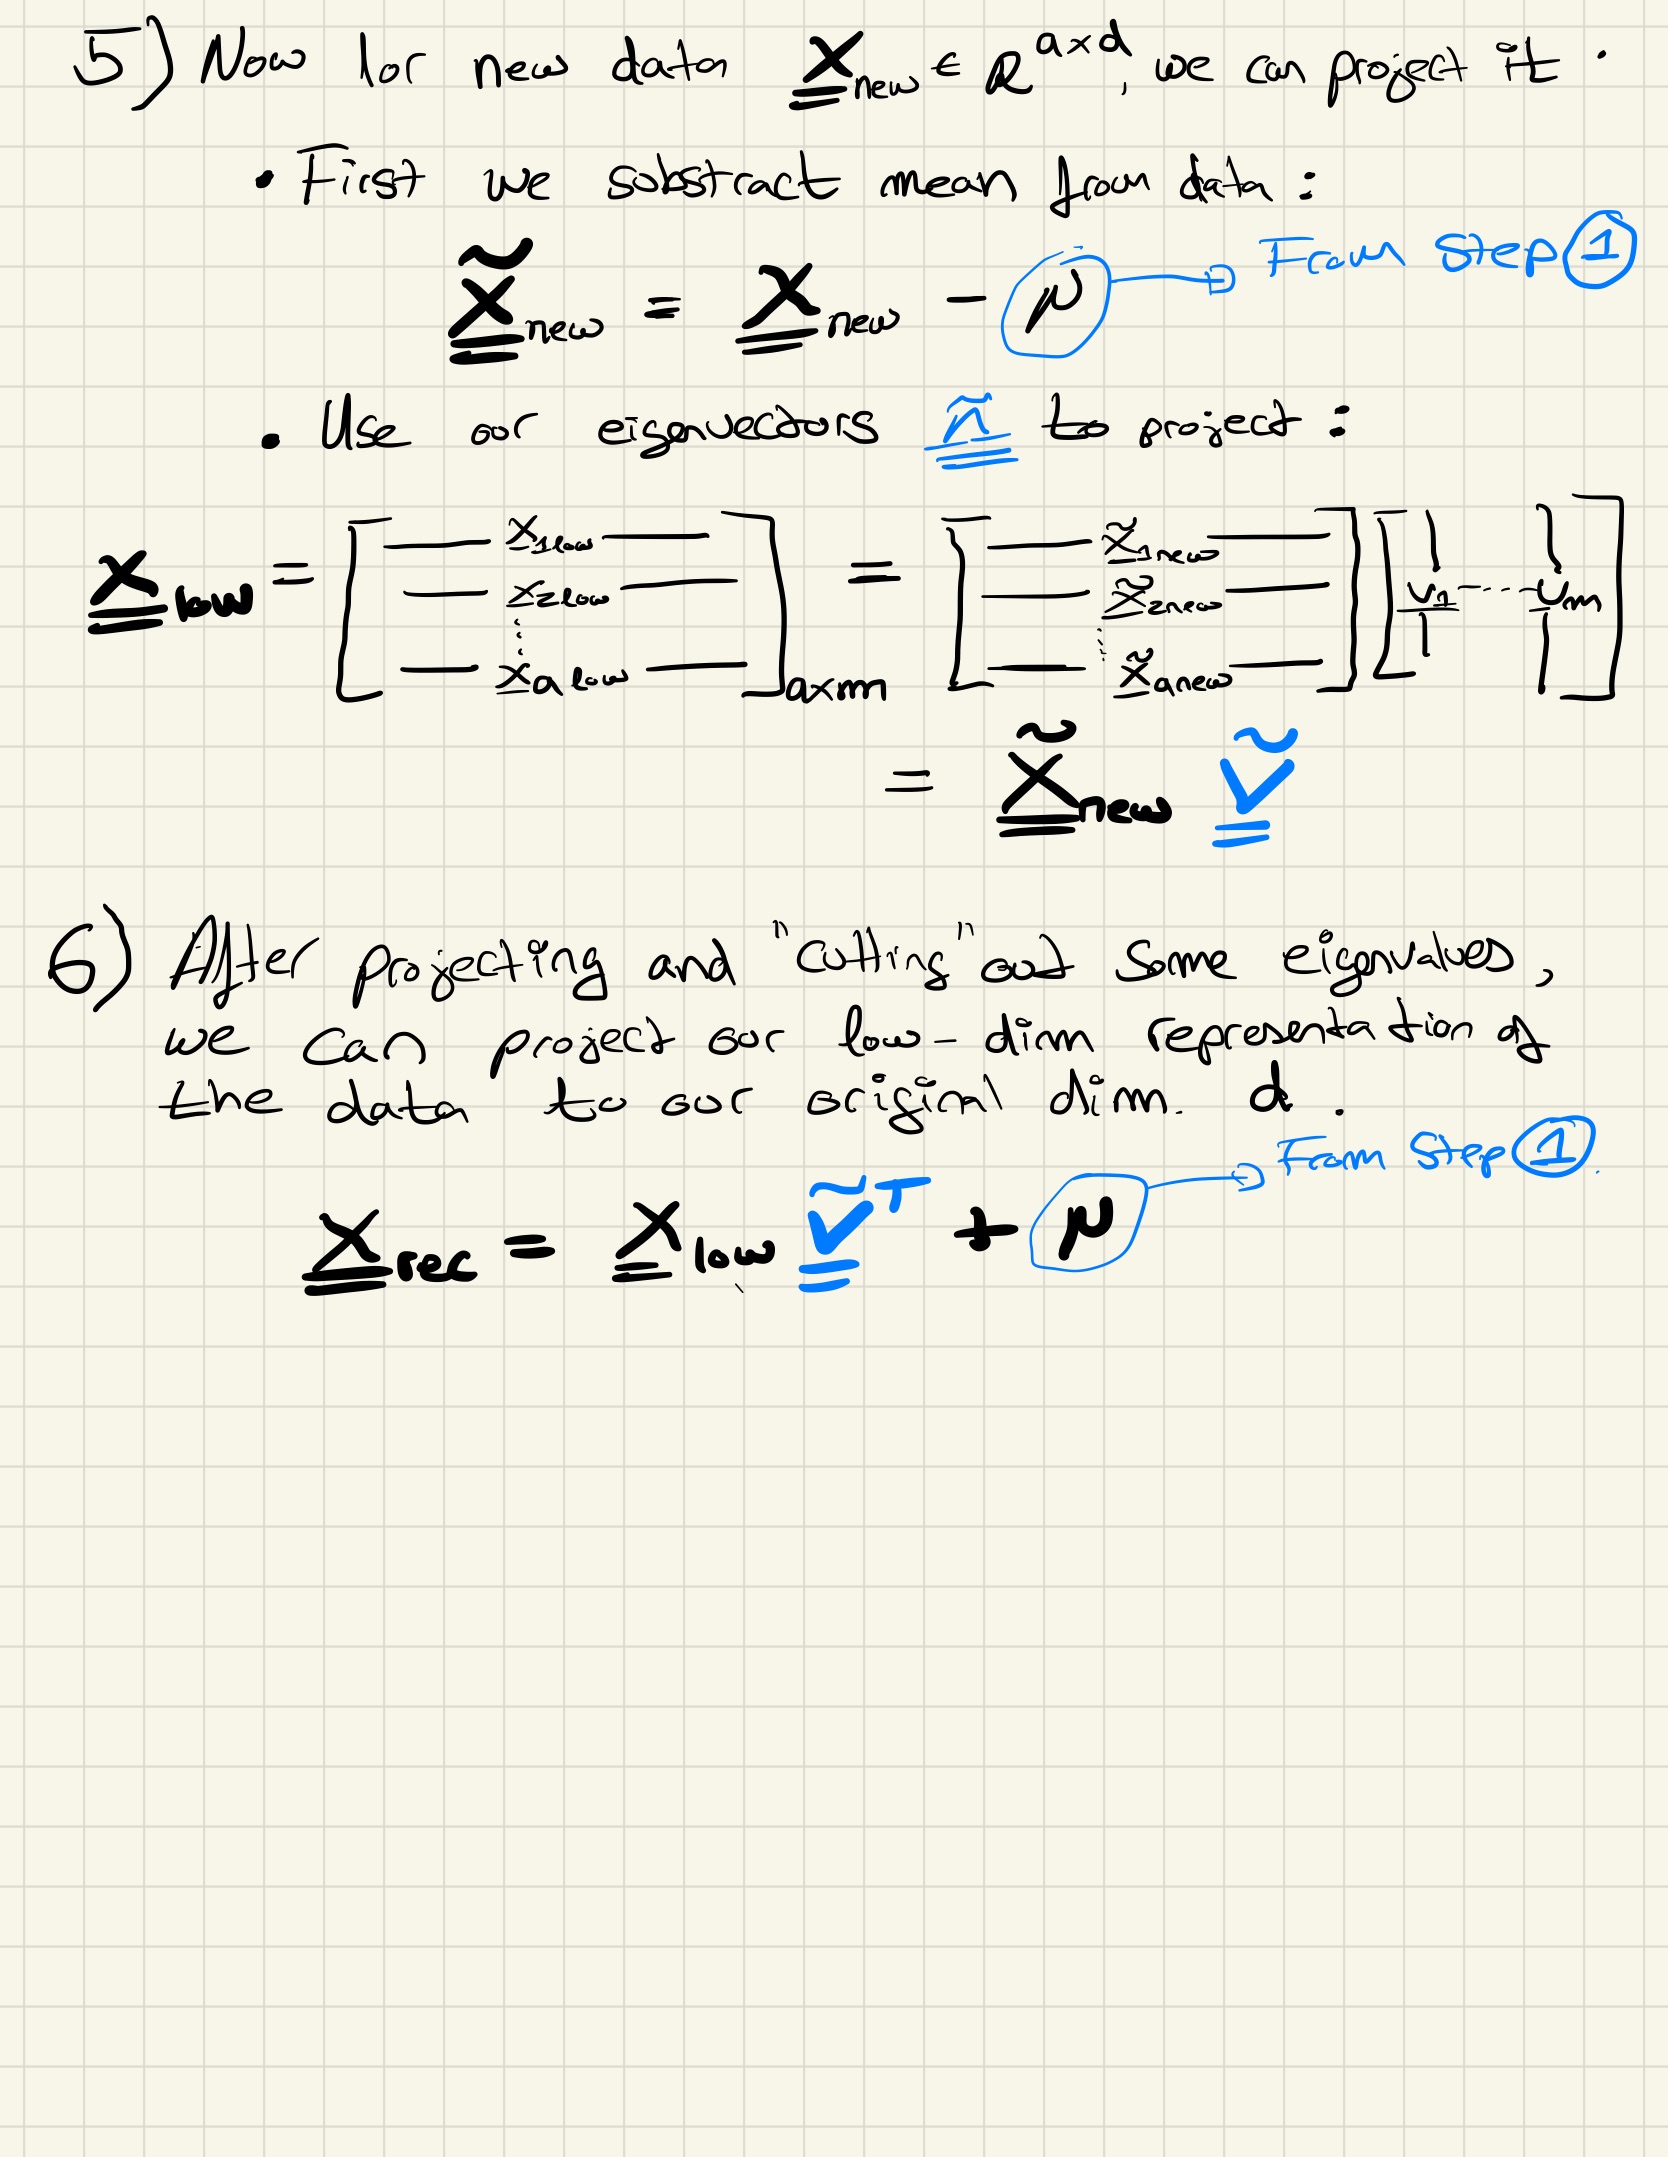 5) Now for new data X̲̲new ∈ R^axd, we can project it.
• First we substract mean from data:
X̲̲̃new = X̲̲new - μ → From Step ①
• Use our eigenvectors to project:
X̲̲low = [— x̲1low — — x̲2low — ⋮ — x̲a low —]axm = [— x̲̃1new — — x̲̃2new — ⋮ — x̲̃anew —] [v̲1 ---- v̲m]
= X̲̲̃new Ṽ̲̲
6) After projecting and "cutting" out some eigenvalues,
we can project our low-dim representation of
the data to our original dim. d.
X̲̲rec = X̲̲low Ṽ̲̲ᵀ + μ → From Step ①